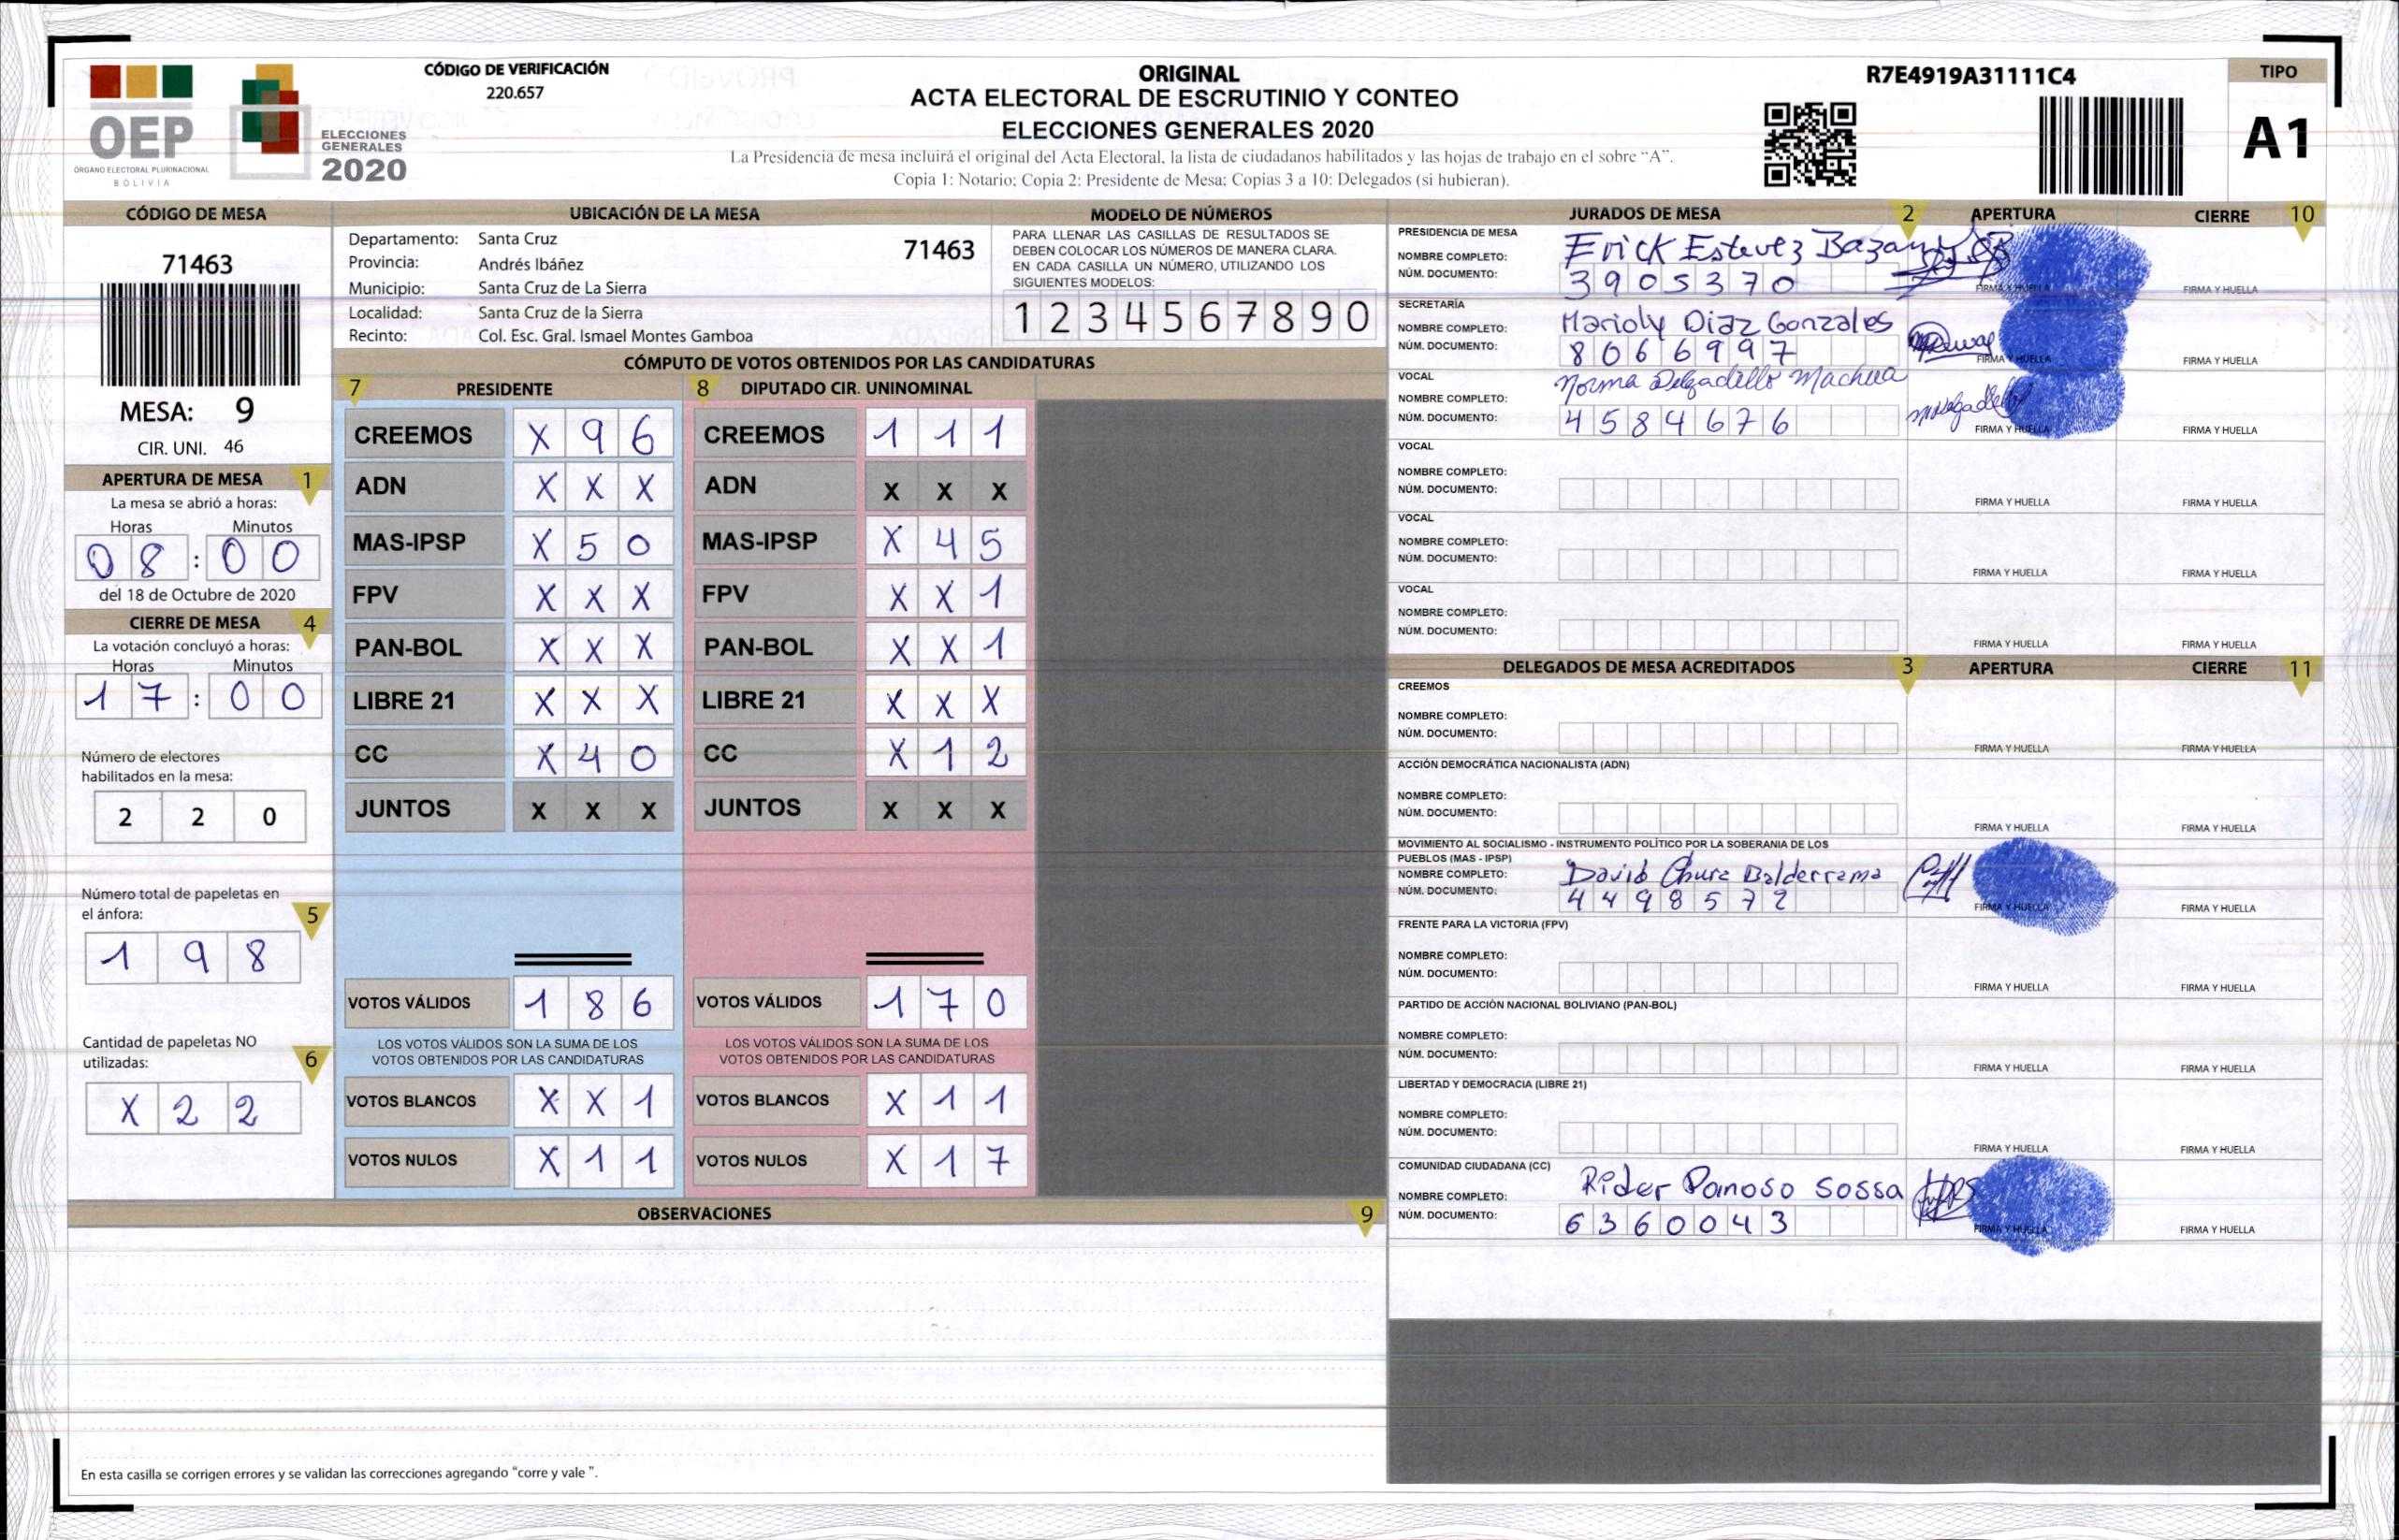 OEP
ÓRGANO ELECTORAL PLURINACIONAL
BOLIVIA
ELECCIONES
GENERALES
2020
CÓDIGO DE VERIFICACIÓN
220.657
ORIGINAL
ACTA ELECTORAL DE ESCRUTINIO Y CONTEO
ELECCIONES GENERALES 2020
La Presidencia de mesa incluirá el original del Acta Electoral, la lista de ciudadanos habilitados y las hojas de trabajo en el sobre “A”.
Copia 1: Notario; Copia 2: Presidente de Mesa; Copias 3 a 10: Delegados (si hubieran).
R7E4919A31111C4
TIPO
A1
CÓDIGO DE MESA
71463
MESA: 9
CIR. UNI. 46
APERTURA DE MESA 1
La mesa se abrió a horas:
Horas Minutos
08 : 00
del 18 de Octubre de 2020
CIERRE DE MESA 4
La votación concluyó a horas:
Horas Minutos
17 : 00
Número de electores
habilitados en la mesa:
2 2 0
Número total de papeletas en
el ánfora: 5
1 9 8
Cantidad de papeletas NO
utilizadas: 6
X 2 2
UBICACIÓN DE LA MESA
Departamento: Santa Cruz 71463
Provincia: Andrés Ibáñez
Municipio: Santa Cruz de La Sierra
Localidad: Santa Cruz de la Sierra
Recinto: Col. Esc. Gral. Ismael Montes Gamboa
MODELO DE NÚMEROS
PARA LLENAR LAS CASILLAS DE RESULTADOS SE
DEBEN COLOCAR LOS NÚMEROS DE MANERA CLARA.
EN CADA CASILLA UN NÚMERO, UTILIZANDO LOS
SIGUIENTES MODELOS:
1 2 3 4 5 6 7 8 9 0
CÓMPUTO DE VOTOS OBTENIDOS POR LAS CANDIDATURAS
7 PRESIDENTE 8 DIPUTADO CIR. UNINOMINAL
CREEMOS X 9 6 CREEMOS 1 1 1
ADN X X X ADN X X X
MAS-IPSP X 5 0 MAS-IPSP X 4 5
FPV X X X FPV X X 1
PAN-BOL X X X PAN-BOL X X 1
LIBRE 21 X X X LIBRE 21 X X X
CC X 4 0 CC X 1 2
JUNTOS X X X JUNTOS X X X
VOTOS VÁLIDOS 1 8 6 VOTOS VÁLIDOS 1 7 0
LOS VOTOS VÁLIDOS SON LA SUMA DE LOS LOS VOTOS VÁLIDOS SON LA SUMA DE LOS
VOTOS OBTENIDOS POR LAS CANDIDATURAS VOTOS OBTENIDOS POR LAS CANDIDATURAS
VOTOS BLANCOS X X 1 VOTOS BLANCOS X 1 1
VOTOS NULOS X 1 1 VOTOS NULOS X 1 7
OBSERVACIONES 9
En esta casilla se corrigen errores y se validan las correcciones agregando “corre y vale ”.
JURADOS DE MESA 2 APERTURA CIERRE 10
PRESIDENCIA DE MESA
NOMBRE COMPLETO: Erick Estevez Bazan
NÚM. DOCUMENTO: 3905370 FIRMA Y HUELLA FIRMA Y HUELLA
SECRETARÍA
NOMBRE COMPLETO: Marioly Diaz Gonzales
NÚM. DOCUMENTO: 8066997 FIRMA Y HUELLA FIRMA Y HUELLA
VOCAL
NOMBRE COMPLETO: Norma Delgadillo Machua
NÚM. DOCUMENTO: 4584676 FIRMA Y HUELLA FIRMA Y HUELLA
VOCAL
NOMBRE COMPLETO:
NÚM. DOCUMENTO: FIRMA Y HUELLA FIRMA Y HUELLA
VOCAL
NOMBRE COMPLETO:
NÚM. DOCUMENTO: FIRMA Y HUELLA FIRMA Y HUELLA
VOCAL
NOMBRE COMPLETO:
NÚM. DOCUMENTO: FIRMA Y HUELLA FIRMA Y HUELLA
DELEGADOS DE MESA ACREDITADOS 3 APERTURA CIERRE 11
CREEMOS
NOMBRE COMPLETO:
NÚM. DOCUMENTO: FIRMA Y HUELLA FIRMA Y HUELLA
ACCIÓN DEMOCRÁTICA NACIONALISTA (ADN)
NOMBRE COMPLETO:
NÚM. DOCUMENTO: FIRMA Y HUELLA FIRMA Y HUELLA
MOVIMIENTO AL SOCIALISMO - INSTRUMENTO POLÍTICO POR LA SOBERANIA DE LOS
PUEBLOS (MAS - IPSP)
NOMBRE COMPLETO: David Chura Balderrama
NÚM. DOCUMENTO: 4498572 FIRMA Y HUELLA FIRMA Y HUELLA
FRENTE PARA LA VICTORIA (FPV)
NOMBRE COMPLETO:
NÚM. DOCUMENTO: FIRMA Y HUELLA FIRMA Y HUELLA
PARTIDO DE ACCIÓN NACIONAL BOLIVIANO (PAN-BOL)
NOMBRE COMPLETO:
NÚM. DOCUMENTO: FIRMA Y HUELLA FIRMA Y HUELLA
LIBERTAD Y DEMOCRACIA (LIBRE 21)
NOMBRE COMPLETO:
NÚM. DOCUMENTO: FIRMA Y HUELLA FIRMA Y HUELLA
COMUNIDAD CIUDADANA (CC)
NOMBRE COMPLETO: Rider Panoso Sossa
NÚM. DOCUMENTO: 6360043 FIRMA Y HUELLA FIRMA Y HUELLA